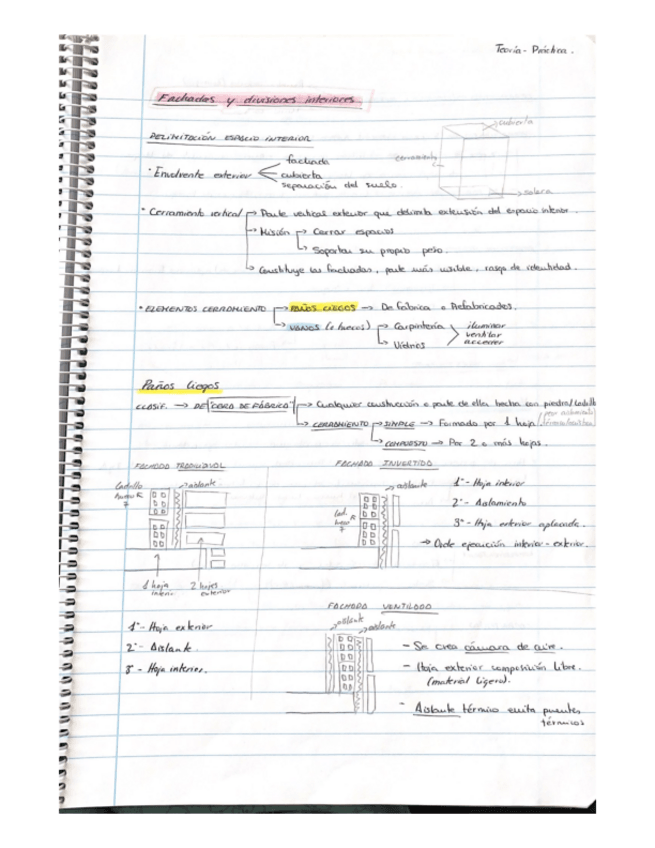 Teoría - Práctica.
Fachadas y divisiones interiores
DELIMITACIÓN ESPACIO INTERIOR
cubierta
cerramiento
solera
· Envolvente exterior
fachada
cubierta
separación del suelo.
· Cerramiento vertical → Parte vertical exterior que delimita extensión del espacio interior.
→ Misión → Cerrar espacios
→ Soportar su propio peso.
→ Constituye las fachadas, parte más visible, rasgo de identidad.
· ELEMENTOS CERRAMIENTO → PAÑOS CIEGOS → De fábrica o Prefabricados.
→ VANOS (o huecos) → Carpintería
→ Vidrios
iluminar
ventilar
acceder
Paños Ciegos
CLASIF. → DE "OBRA DE FÁBRICA" → Cualquier construcción o parte de ella hecha con piedra/ladrillo
→ CERRAMIENTO → SIMPLE → Formado por 1 hoja
→ COMPUESTO → Por 2 o más hojas.
FACHADA TRADICIONAL
Ladillo
hueco R
7
aislante
1 hoja
interior
2 hojas
exterior
1º- Hoja exterior
2º- Aislante.
3º- Hoja interior.
FACHADA INVERTIDA
aislante
Lad.
hueco R
7
1º- Hoja interior
2º- Aislamiento
3º- Hoja exterior aplacada.
→ Orden ejecución interior-exterior.
FACHADA VENTILADA
aislante
aislante
- Se crea cámara de aire.
- Hoja exterior composición libre.
(material ligero).
- Aislante térmico evita puentes
térmicos